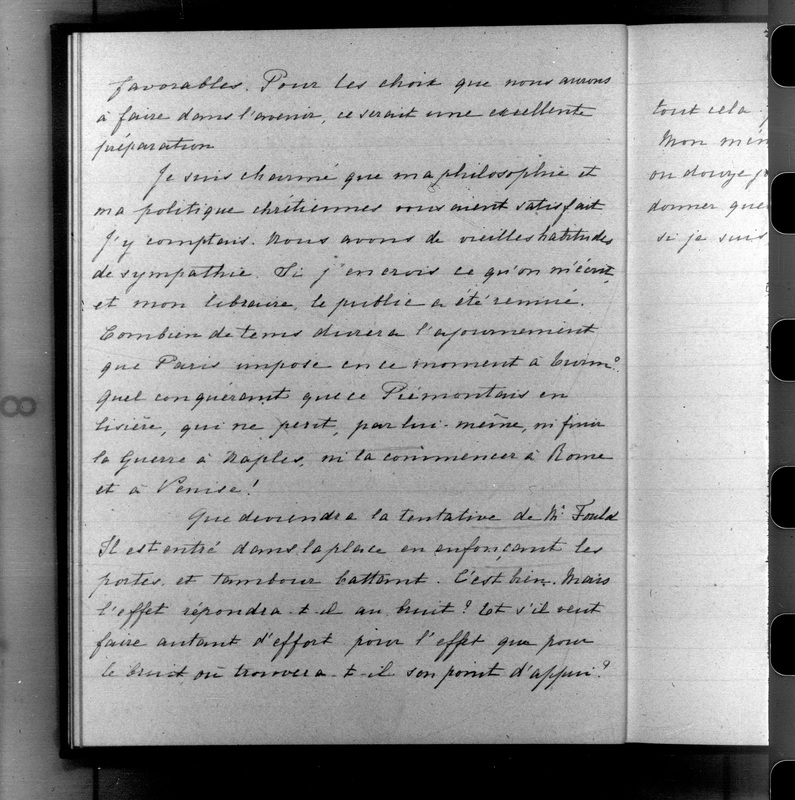 favorables. Pour les choix que nous aurons
à faire dans l'avenir, ce serait une excellente
préparation
Je suis charmé que ma philosophie et
ma politique chrétiennes vous aient satisfait
J'y comptais. Nous avons de vieilles habitudes
de sympathie. Si j'en crois ce qu'on m'écrit,
et mon libraire, le public a été remué.
Combien de tems durera l'ajournement
que Paris impose en ce moment à Turin?
Quel conquérant que ce Piémontais en
lisière, qui ne peut, par lui-même, ni finir
la guerre à Naples, ni la commencer à Rome
et à Venise!
Que deviendra la tentative de Mr Fould
Il est entré dans la place en enfonçant les
portes et tambour battant. C'est bien. Mais
l'effet répondra-t-il au bruit? Et s'il veut
faire autant d'effort pour l'effet que pour
le bruit où trouvera-t-il son point d'appui?
tout cela
Mon
ou douze
donner
si je suis
8